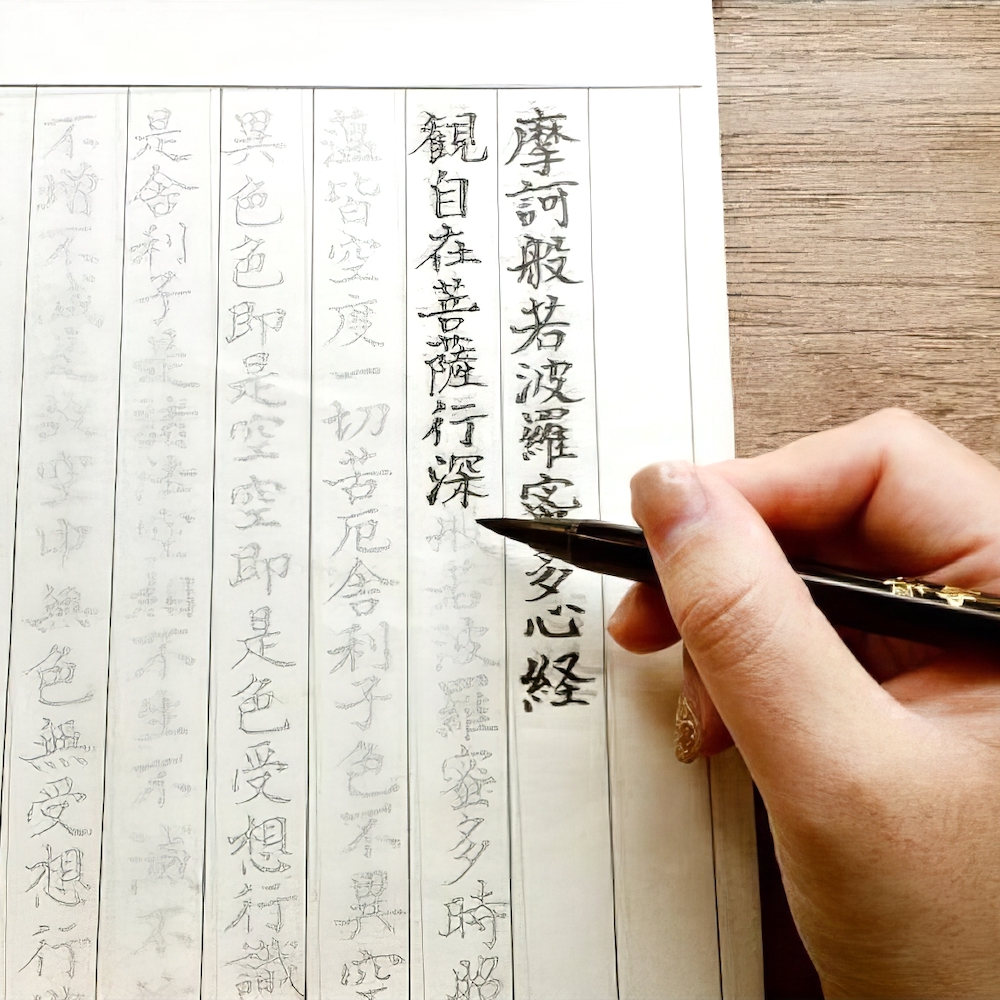 摩訶般若波羅蜜多心経
観自在菩薩行深般若波羅蜜多時照
蘊皆空度一切苦厄舎利子色不異空
異色色即是空空即是色受想行識
是舎利子是諸法空相不生不滅不
不増不減是故空中無色無受想行